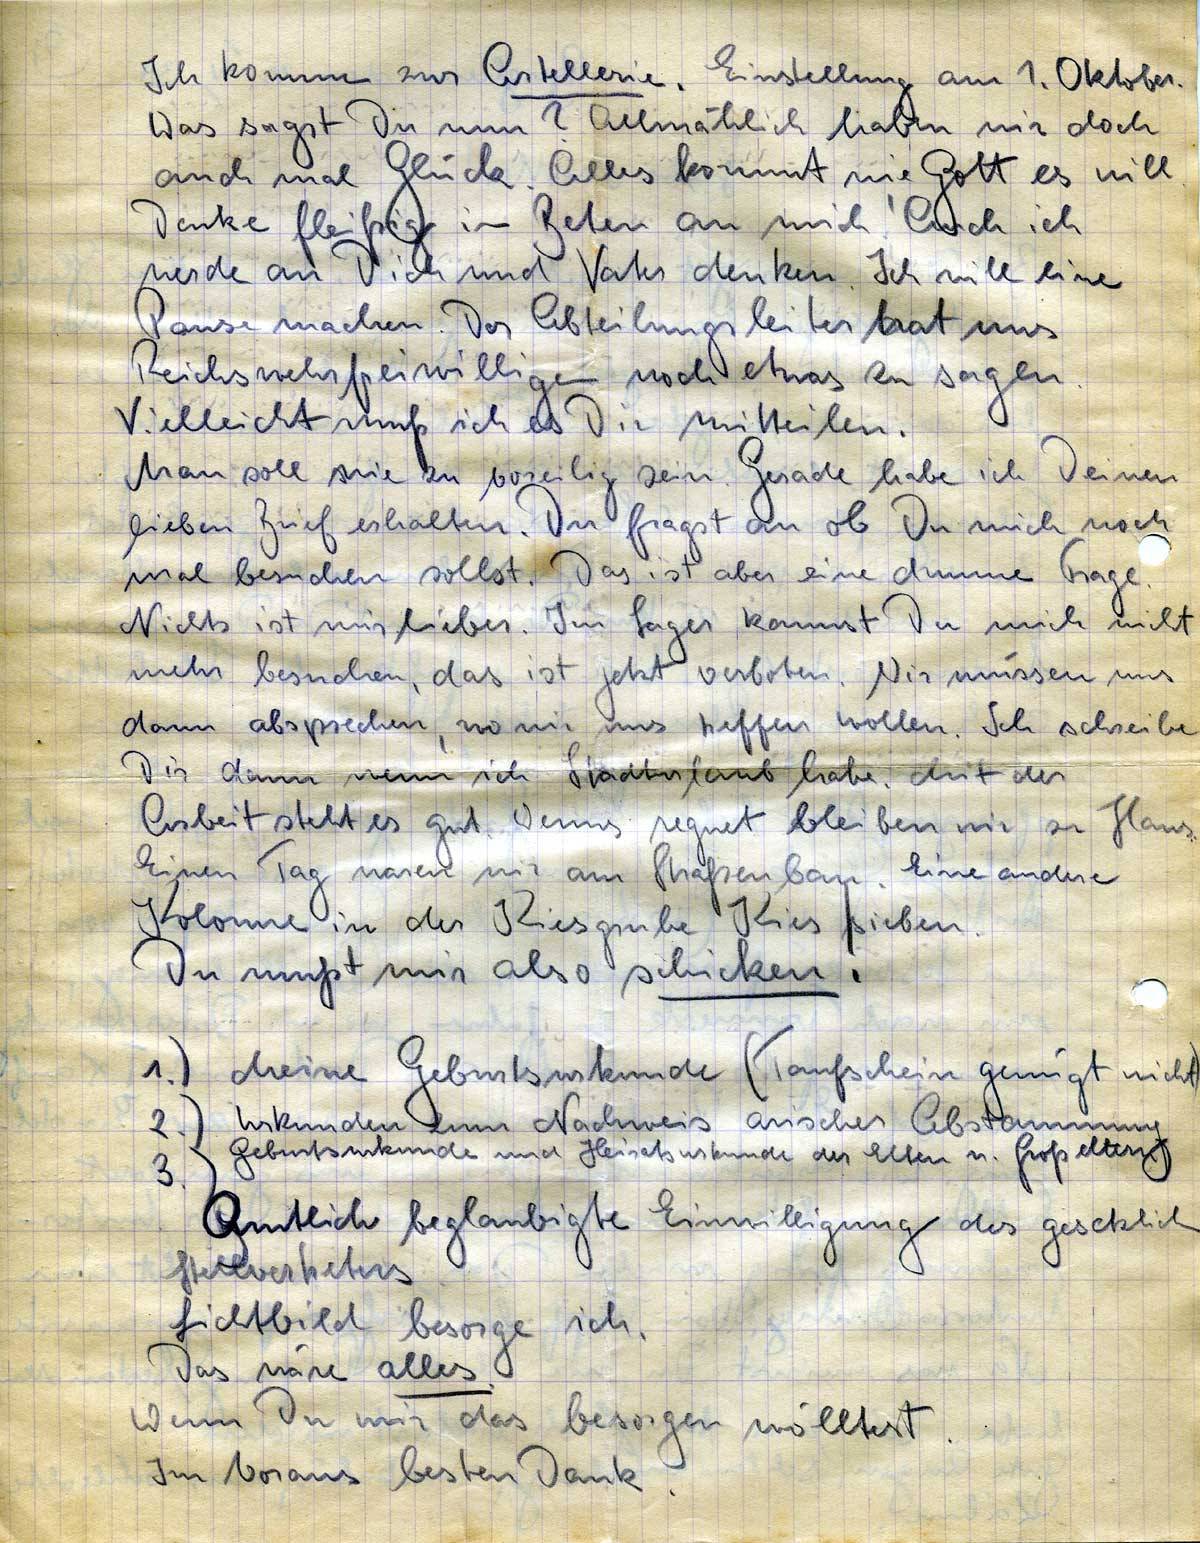 Ich komme zur Artellerie. Einstellung am 1. Oktober.
Was sagst Du nun? Allmählich haben wir doch
auch mal Glück. Alles kommt wie Gott es will
Denke fleißig im Beten an mich! Auch ich
werde an Dich und Vater denken. Ich will eine
Pause machen. Der Abteilungsleiter hat uns
Reichswehrfreiwilligen noch etwas zu sagen.
Vielleicht muß ich es Dir mitteilen.
Man soll nie zu voreilig sein. Gerade habe ich Deinen
lieben Brief erhalten. Du fragst an ob Du mich noch
mal besuchen sollst. Das ist aber eine dumme Frage.
Nichts ist mir lieber. Im Lager kannst Du mich nicht
mehr besuchen, das ist jetzt verboten. Wir müssen uns
dann absprechen, wo wir uns treffen wollen. Ich schreibe
Dir dann wenn ich Stadturlaub habe. Mit der
Arbeit steht es gut. Wenns regnet bleiben wir zu Haus.
Einen Tag waren wir am Straßenbau. Eine andere
Kolonne in der Kiesgrube Kies sieben.
Du mußt mir also schicken!
1.) Meine Geburtsurkunde (Taufschein genügt nicht)
2.) Urkunden zum Nachweis arischer Abstammung
Geburtsurkunde und Heiratsurkunde der Eltern u. Großeltern)
3.)
Amtlich beglaubigte Einwilligung des gesetzlich
Stellvertreters
Lichtbild besorge ich.
Das wäre alles.
Wenn Du mir das besorgen wölltest.
Im Voraus besten Dank.